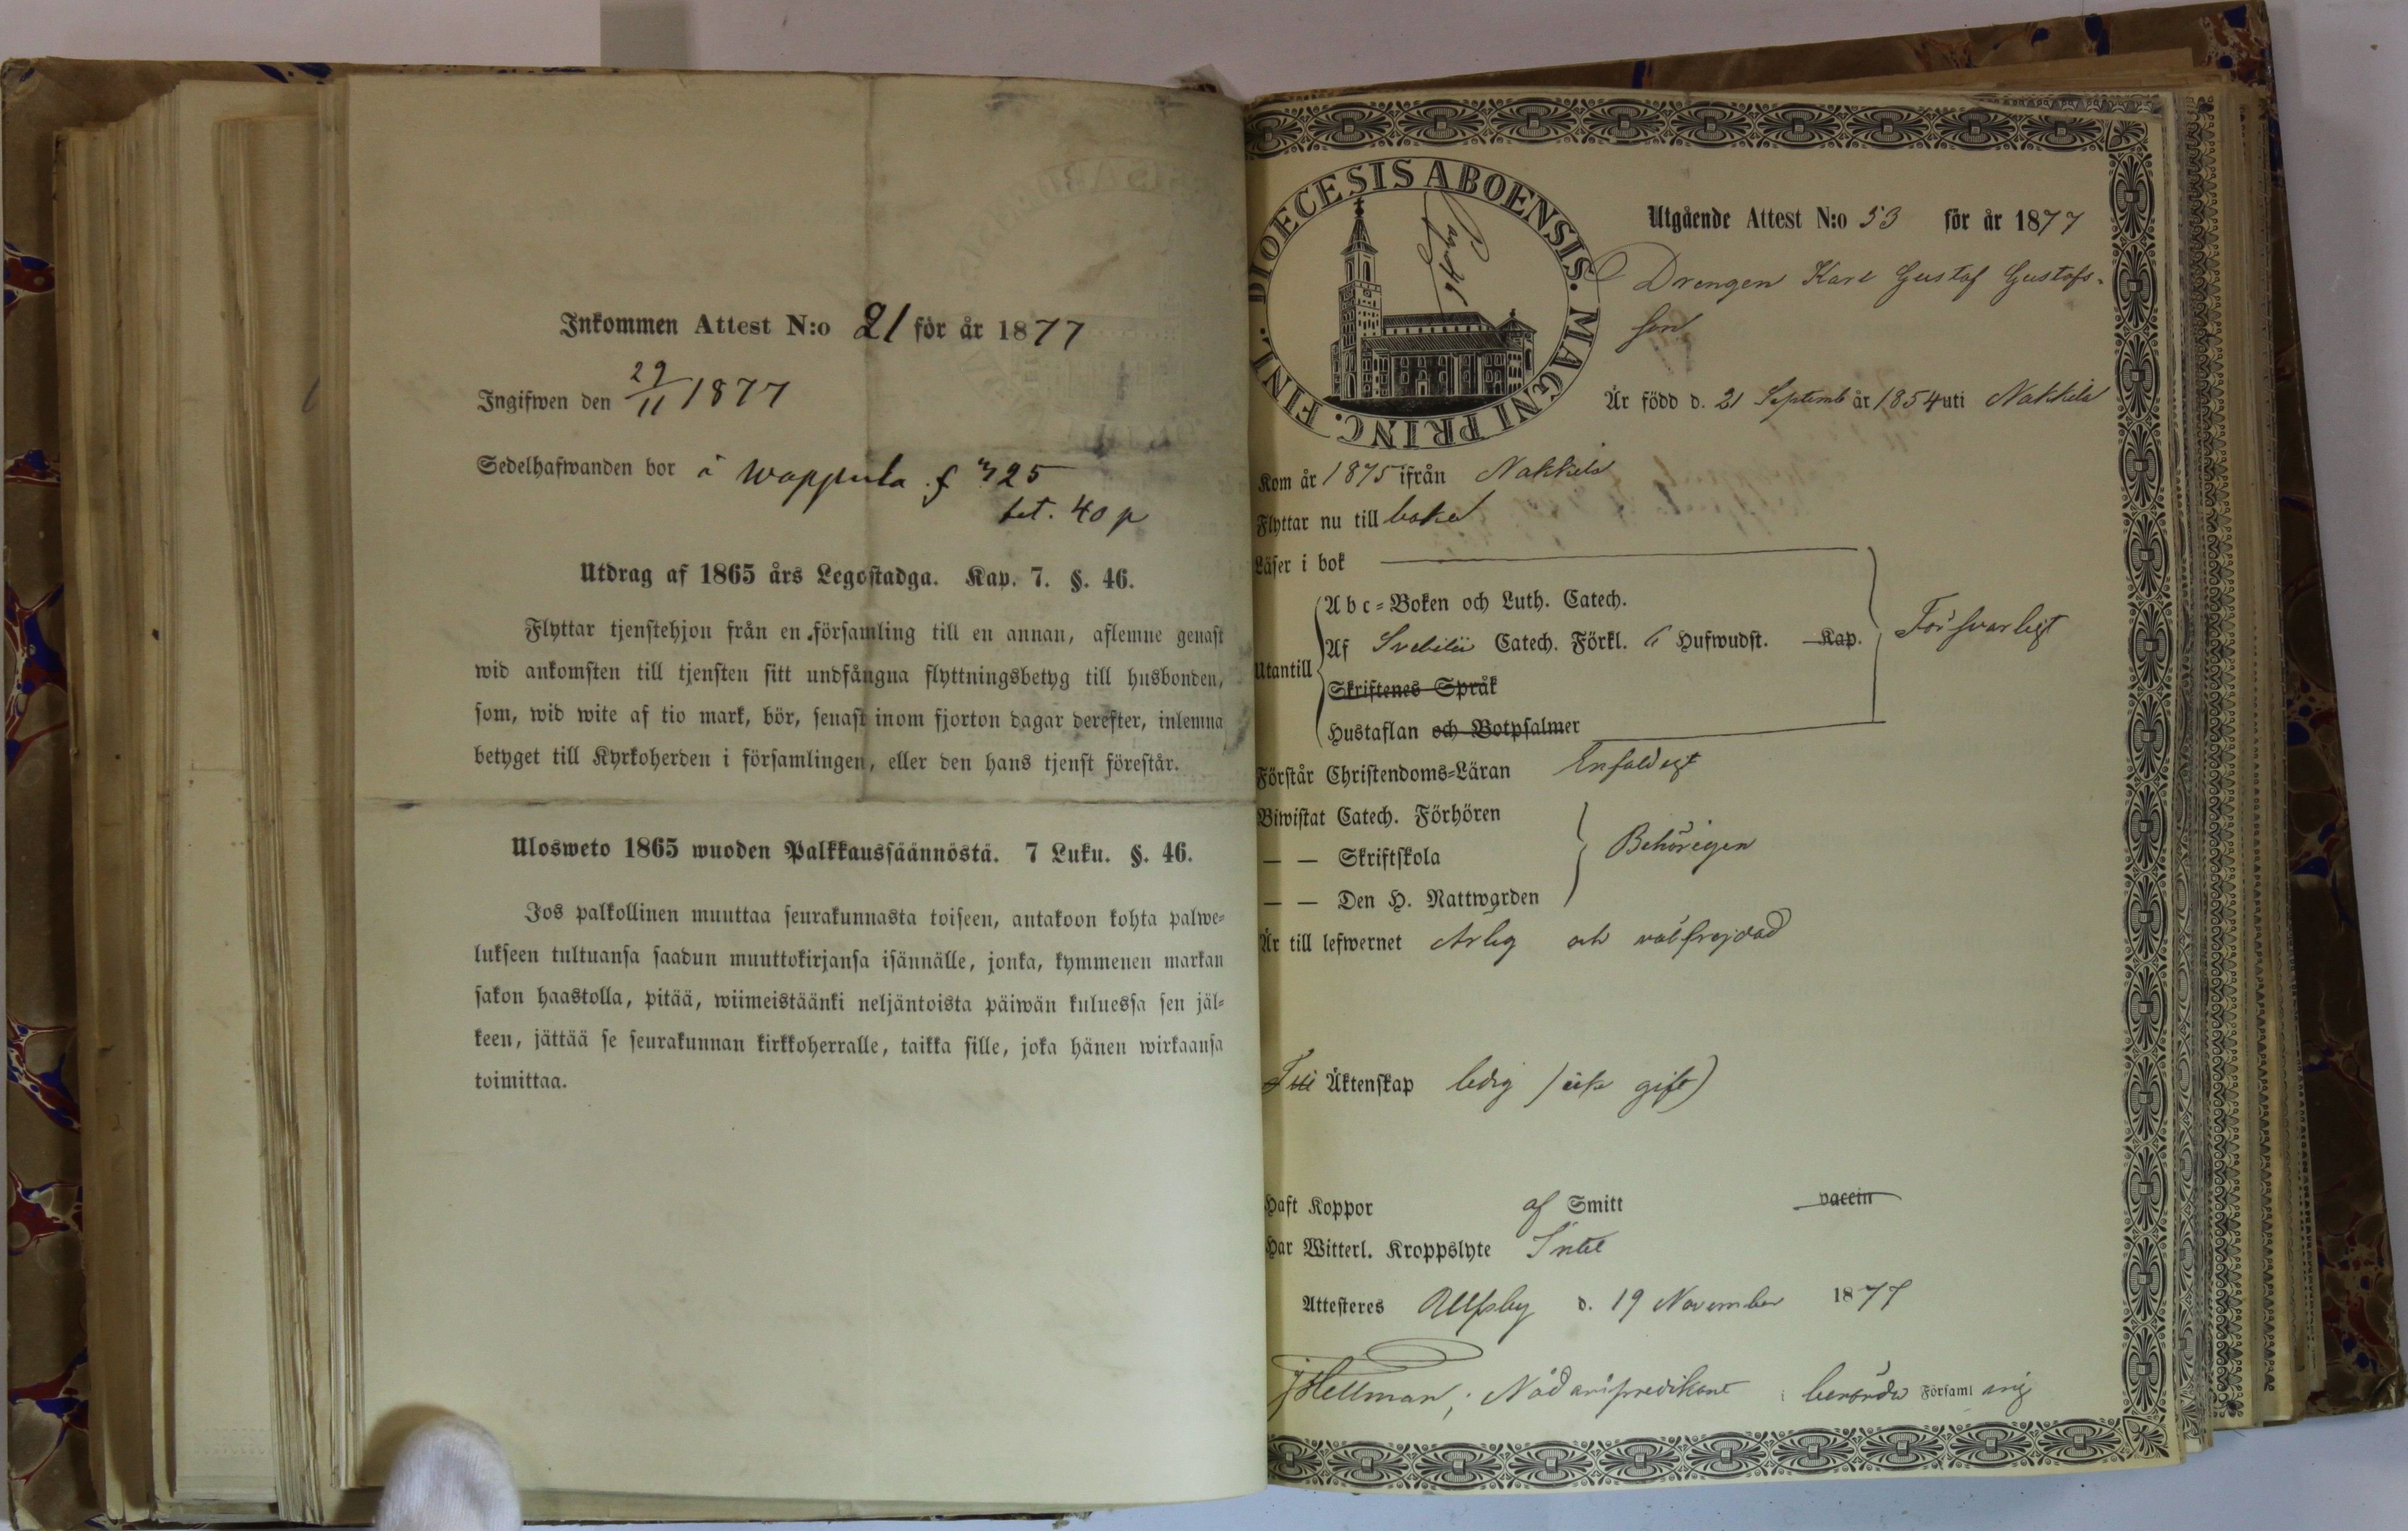 Inkommen Attest N:o 21 för år 1877
Ingifwen den 29/11 1877
Sedelhafwanden bor å Wappula f 325
bet. 40 p
Utdrag af 1865 års Legostadga. Kap. 7. §. 46.
Flyttar tjenstehjon från en församling till en annan, aflemne genast
wid ankomsten till tjensten sitt undfångna flyttningsbetyg till husbonden,
som, wid wite af tio mark, bör, senast inom fjorton dagar derefter, inlemna
betyget till Kyrkoherden i församlingen, eller den hans tjenst förestår.
Ulosweto 1865 wuoden Palkkaussäännöstä. 7 Luku. §. 46.
Jos palkollinen muuttaa seurakunnasta toiseen, antakoon kohta palwe-
lukseen tultuansa saadun muuttokirjansa isännälle, jonka, kymmenen markan
sakon haastolla, pitää, wiimeistäänki neljäntoista päiwän kuluessa sen jäl-
keen, jättää se seurakunnan kirkkoherralle, taikka sille, joka hänen wirkaansa
toimittaa.
DIOECESIS ABOENSIS. MAGNI PRINC. FINL.
Utgående Attest N:o 53 för år 1877
Drengen Karl Gustaf Gustafs-
son
Är född d. 21 Septemb år 1854 uti Nakkila
Kom år 1875 ifrån Nakkila
Flyttar nu till baka
Läser i bok
Abc-Boken och Luth. Catech.
Utantill Af Svebilii Catech. Förkl. 6 Hufwudst. Kap. Försvarligt
Skriftenes Språk
Hustaflan och Botpsalmer
Förstår Christendoms-Läran Enfaldigt
Biwistat Catech. Förhören
— — Skriftskola Behörigen
— — Den H. Nattwarden
Är till lefwernet Ärlig och välfrejdad
Till Äktenskap ledig (ick gift)
Haft Koppor af Smitt vaccin
Har Witterl. Kroppslyte Intet
Attesteres Ulfsby d. 19 November 1877
J Hellman, Nådårspredikant i berörda Församl ing